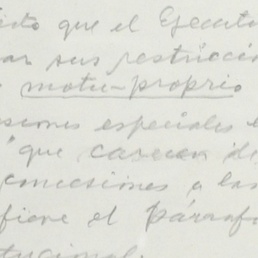 que el Ejecuti
ar sus restriccio
motu-proprio
siones especiales e
"que carecen de
concesiones a las
fiere el párrafo
tucional.